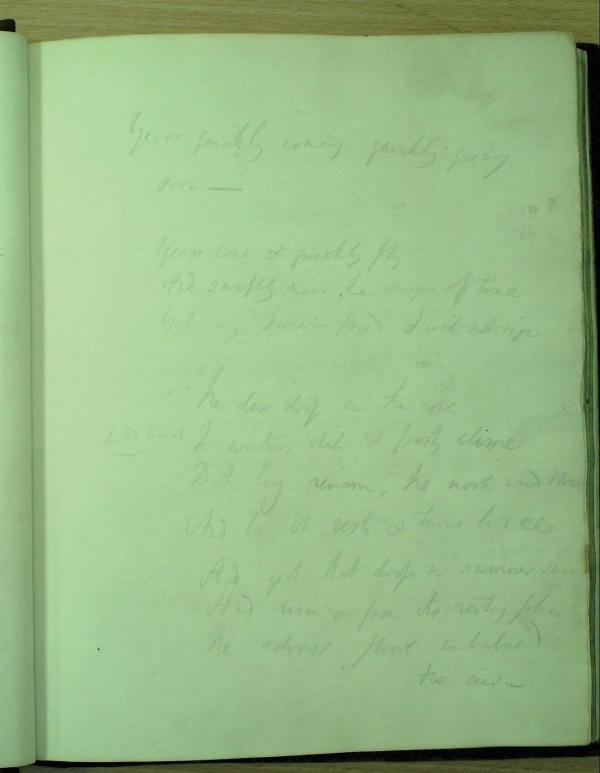 Years quickly coming quickly going
soon —
Years come & quickly fly
And swiftly move the wings of time
Yet my sweet friend I will not
The dew drop on the rose
In winters chill & frosty clime
Doth long remain, the north wind blows
And to it rests & turns to ice
And yet that drop in summer
Had risen & from its resting place
The odorous plant embalmed
the air —